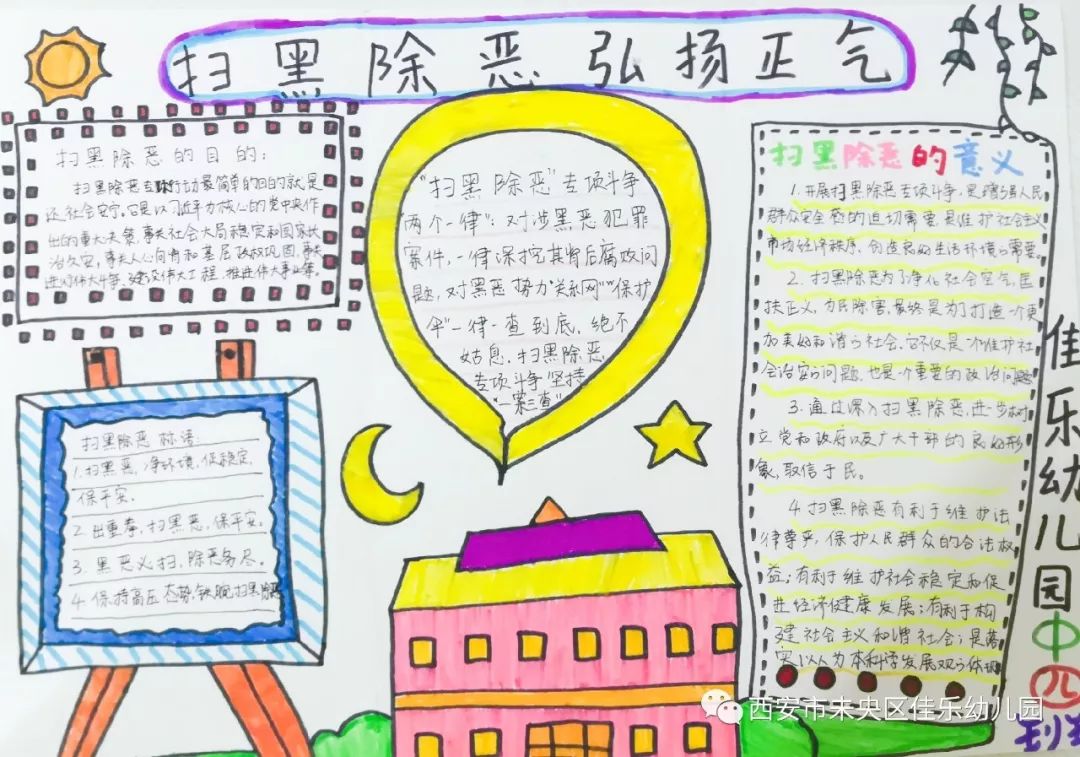 扫黑除恶弘扬正气
扫黑除恶的目的：
扫黑除恶专项行动最简单的目的就是
还社会安宁。它是以习近平为核心的党中央作
出的重大决策，事关社会大局稳定和国家长
治久安，事关人心向背和基层政权巩固，事关
进行伟大斗争，建设伟大工程，推进伟大事业等。
"扫黑除恶"专项斗争
"两个一律"：对涉黑恶犯罪
案件，一律深挖其背后腐败问
题，对黑恶势力"关系网""保护
伞"一律一查到底，绝不
姑息。扫黑除恶
专项斗争坚持
"一案三查"
扫黑除恶标语：
1.扫黑恶，净环境，促稳定，
保平安。
2.出重拳，扫黑恶，保平安。
3.黑恶必扫，除恶务尽。
4.保持高压态势，铁腕扫黑除恶
扫黑除恶的意义
1.开展扫黑除恶专项斗争，是增强人民
群众安全感的迫切需要，是维护社会主义
市场经济秩序，创造良好生活环境的需要。
2.扫黑除恶为了净化社会空气，匡
扶正义，为民除害，最终是为了打造一个更
加美好和谐的社会，它不仅是一个维护社
会治安的问题，也是一个重要的政治问题
3.通过深入扫黑除恶，进一步树
立党和政府以及广大干部的良好形
象，取信于民。
4.扫黑除恶有利于维护法
律尊严，保护人民群众的合法权
益；有利于维护社会稳定和促
进经济健康发展；有利于构
建社会主义和谐社会；是落
实以人为本科学发展观的体现
佳乐幼儿园中四
西安市未央区佳乐幼儿园